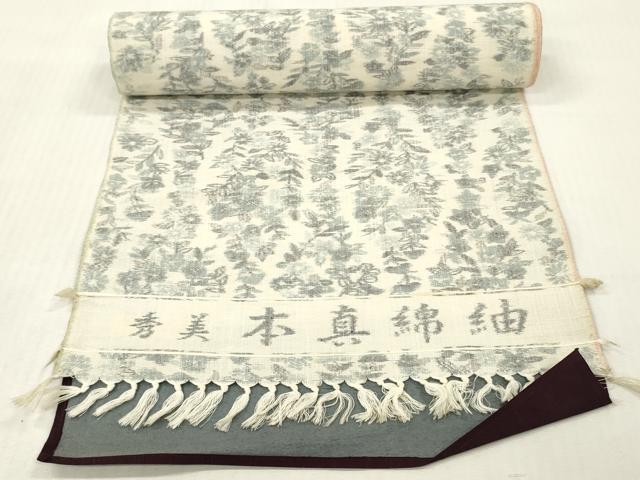 秀美 本真綿紬